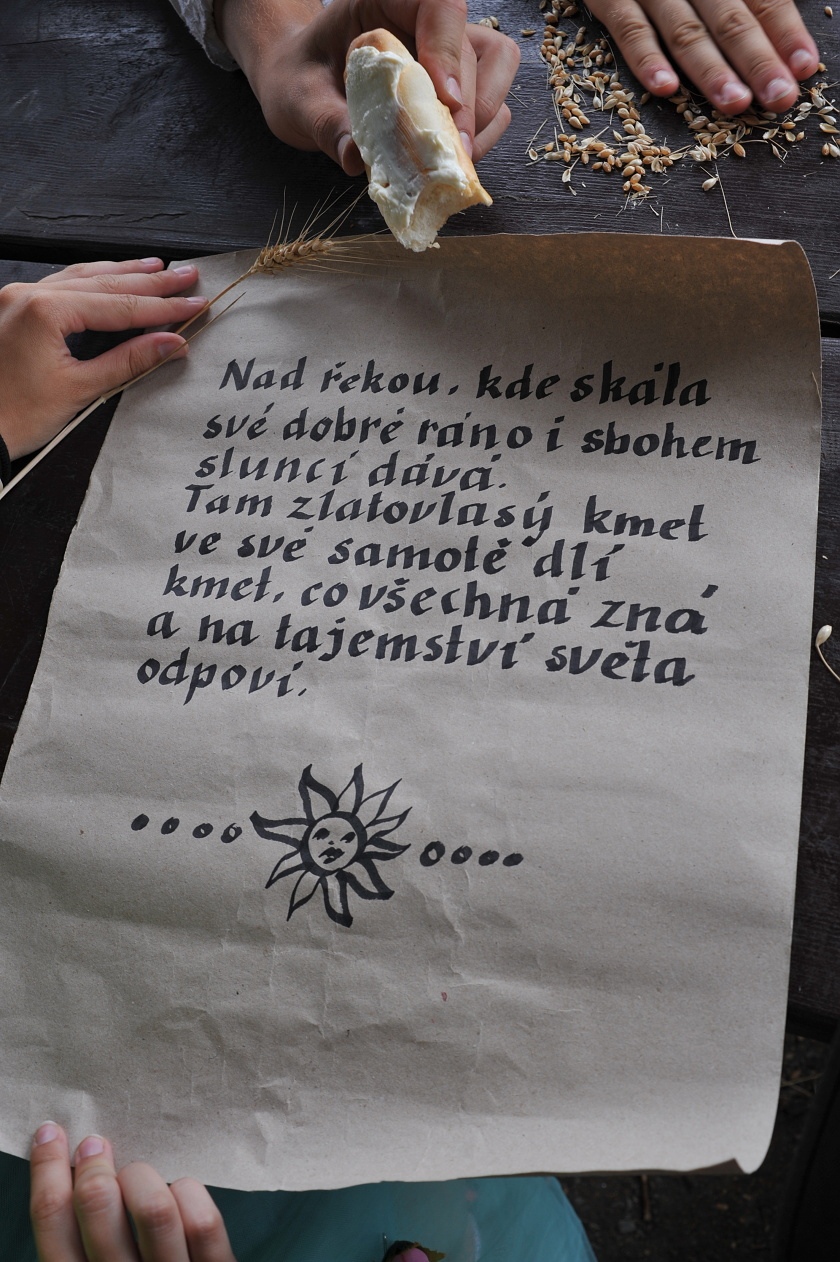 Nad řekou, kde skála
své dobré ráno i sbohem
slunci dává.
Tam zlatovlasý kmet
ve své samotě dlí
kmet, co všechna zná
a na tajemství světa
odpoví.